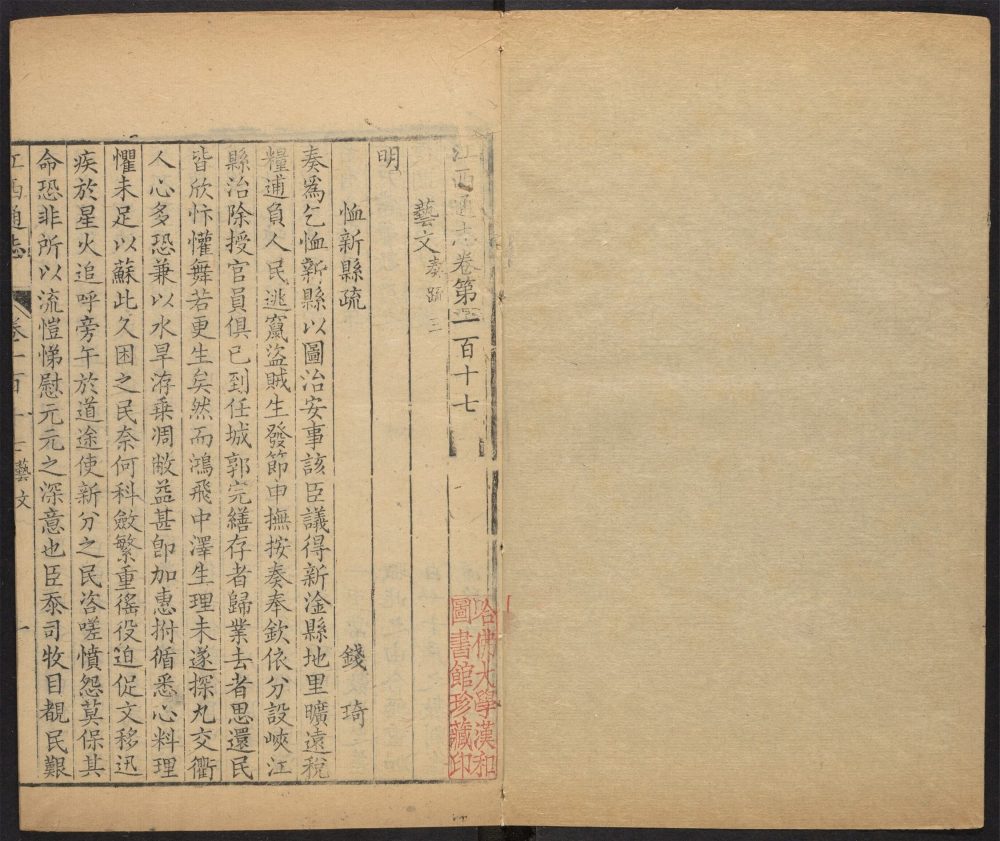 江西通志卷第一百十七
藝文 奏疏三
明
恤新縣疏 錢琦
奏爲乞恤新縣以圖治安事該臣議得新淦縣地里曠遠稅
糧逋負人民逃竄盜賊生發節申撫按奏奉欽依分設峽江
縣治除授官員俱已到任城郭完繕存者歸業去者思還民
皆欣忭懽舞若更生矣然而鴻飛中澤生理未遂探丸交衢
人心多恐兼以水旱洊乗凋敝益甚卽加惠拊循悉心料理
懼未足以蘇此久困之民奈何科斂繁重徭役迫促文移迅
疾於星火追呼旁午於道途使新分之民咨嗟憤怨莫保其
命恐非所以流愷悌慰元元之深意也臣忝司牧目覩民艱
江西通志 卷一百十七 藝文 一
哈佛大學漢和
圖書館珍藏印